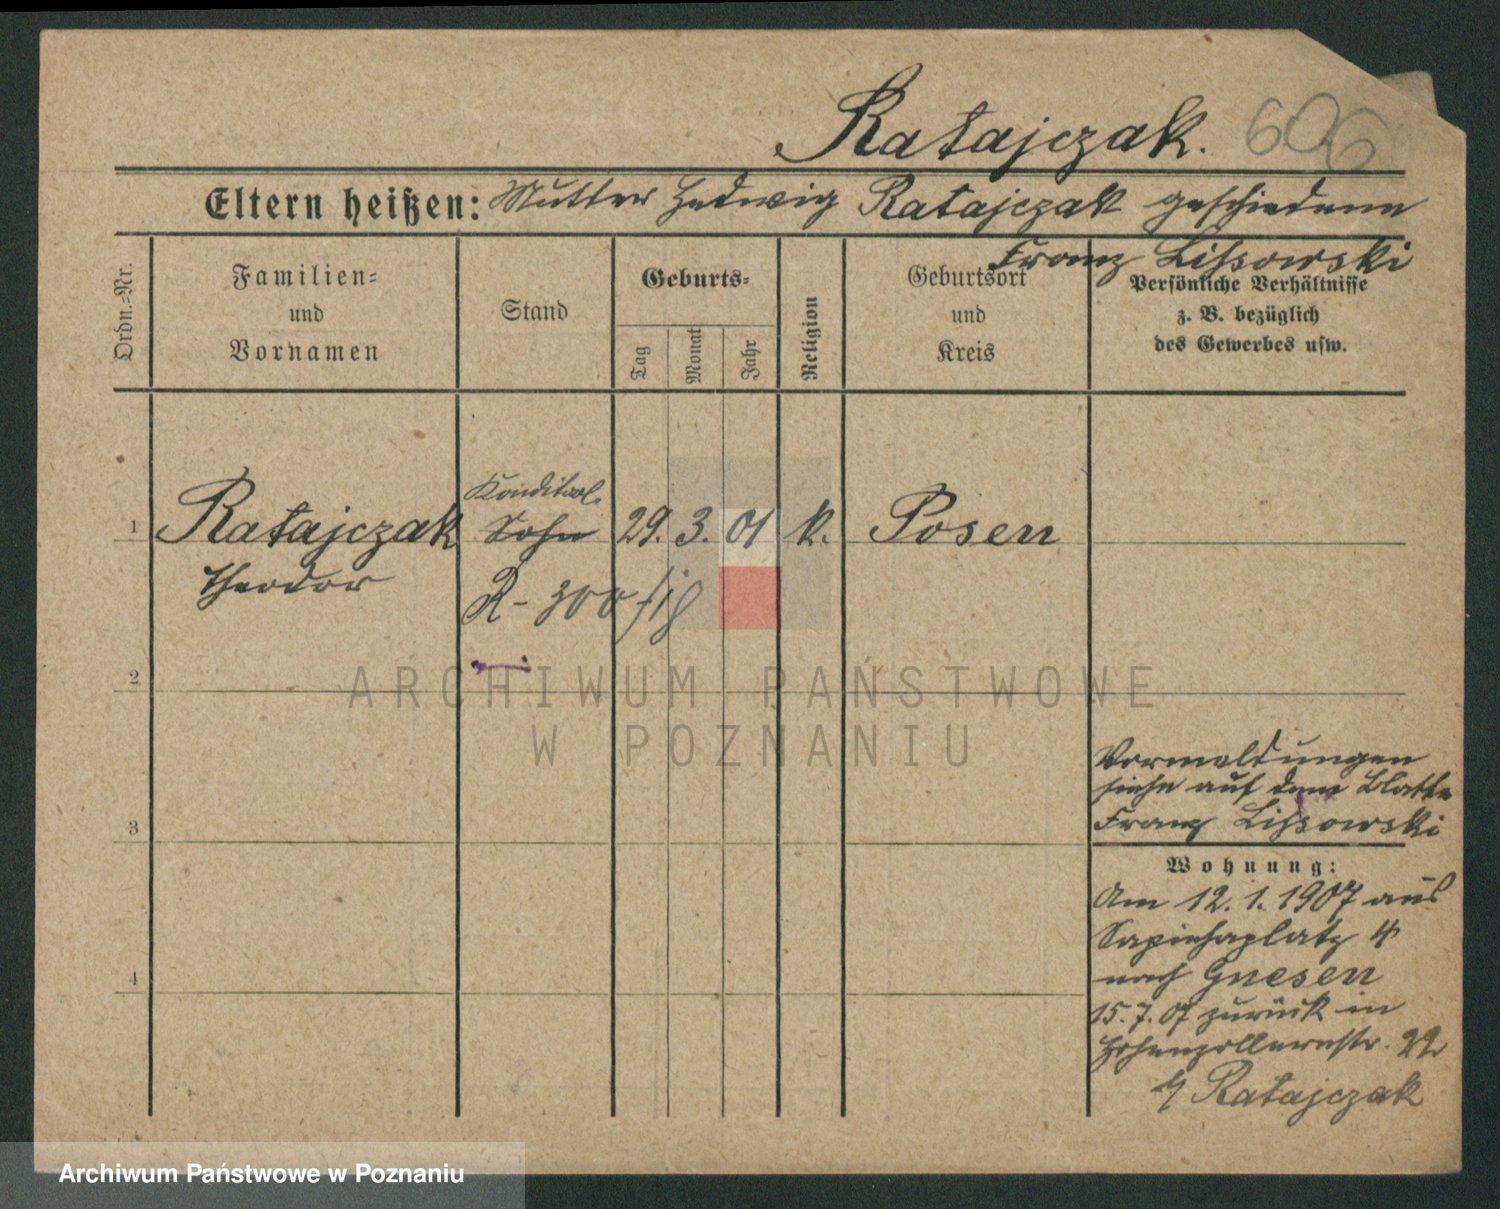 Ratajczak. 606
Eltern heißen: Mutter Hedwig Ratajczak geschiedene
Franz Lissowski
Ordn.=Nr.
Familien=
und
Vornamen
Stand
Geburts=
Tag
Monat
Jahr
Religion
Geburtsort
und
Kreis
Persönliche Verhältnisse
z. B. bezüglich
des Gewerbes usw.
Konditorl.
1 Ratajczak Sohn 29. 3. 01 k. Posen
Theodor
R - 300
2
ARCHIWUM PAŃSTWOWE
W POZNANIU
3
4
Vormeldungen
siehe auf dem Blatte
Franz Lissowski
Wohnung:
Am 12. 1. 1907 aus
Sapiehaplatz 4
nach Gnesen
15. 7. 07 zurück in
Hohenzollernstr. 22
b/ Ratajczak
Archiwum Państwowe w Poznaniu